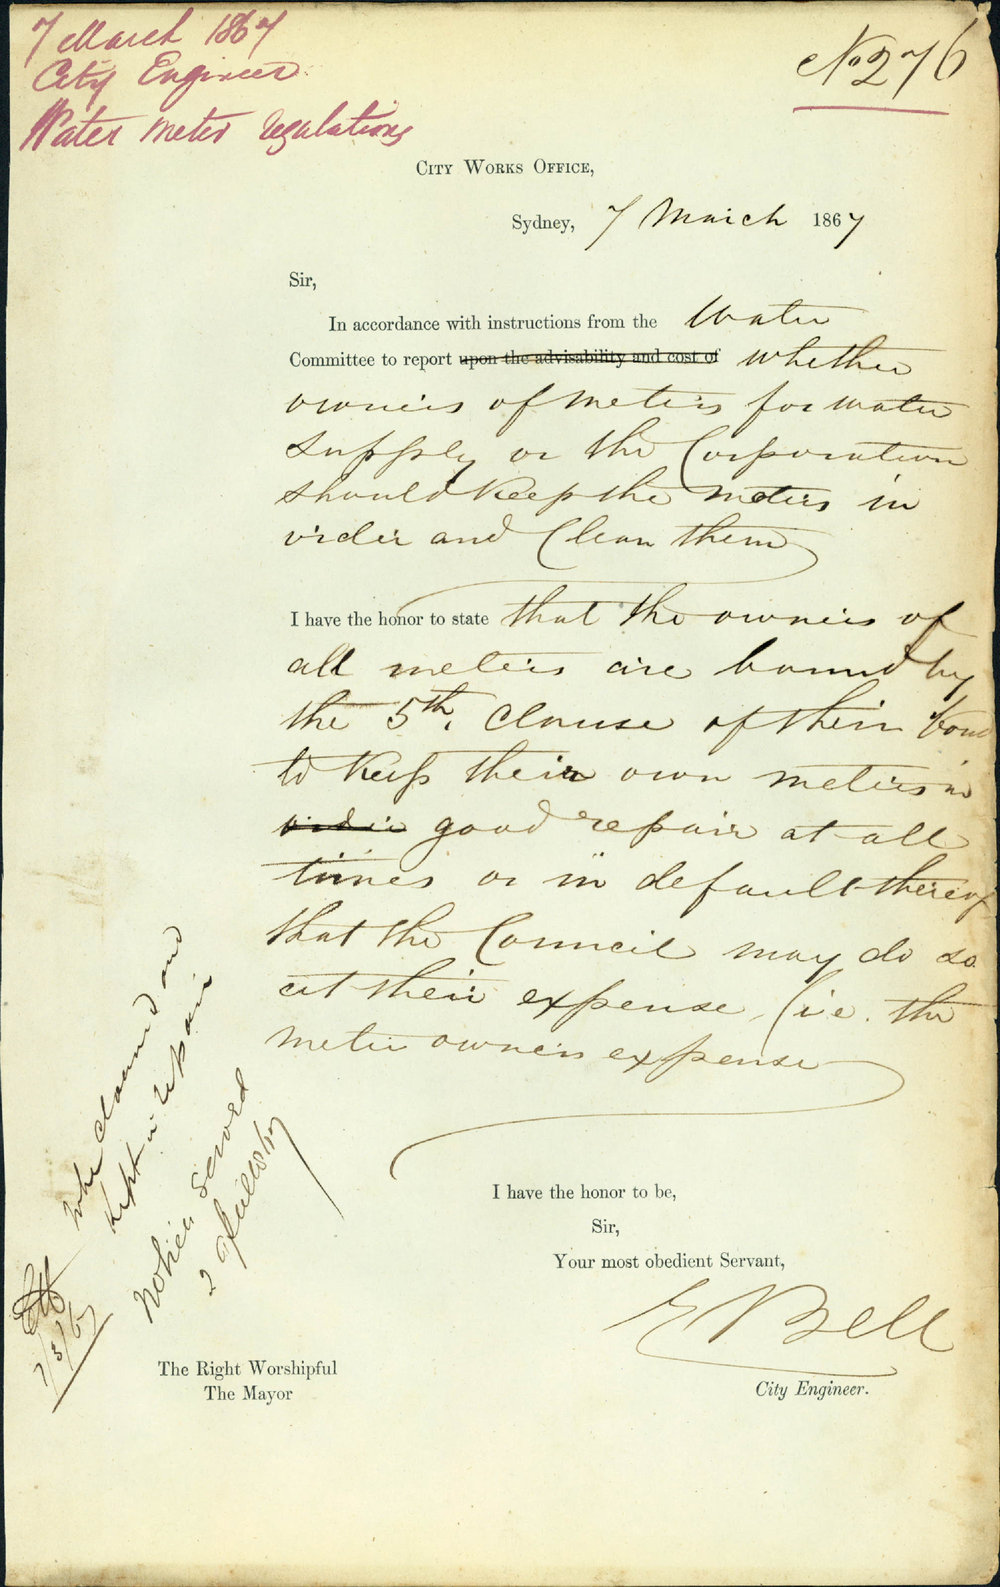 7 March 1867
City Engineer
Water Meter regulations
No 276
City Works Office,
Sydney, 7 March 1867
Sir,
In accordance with instructions from the Water
Committee to report upon the advisability and cost of whether
owners of meters for water
supply or the Corporation
should keep the meters in
order and Clean them
I have the honor to state that the owners of
all meters are bound by
the 5th. Clause of their bond
to keep their own meters in
order good repair at all
times or in default thereof
that the Council may do so
at their expense (i.e. the
meter owners expense
I have the honor to be,
Sir,
Your most obedient Servant,
E Bell
City Engineer.
The Right Worshipful
The Mayor
and
kept in repair
Notices served
7/3/67